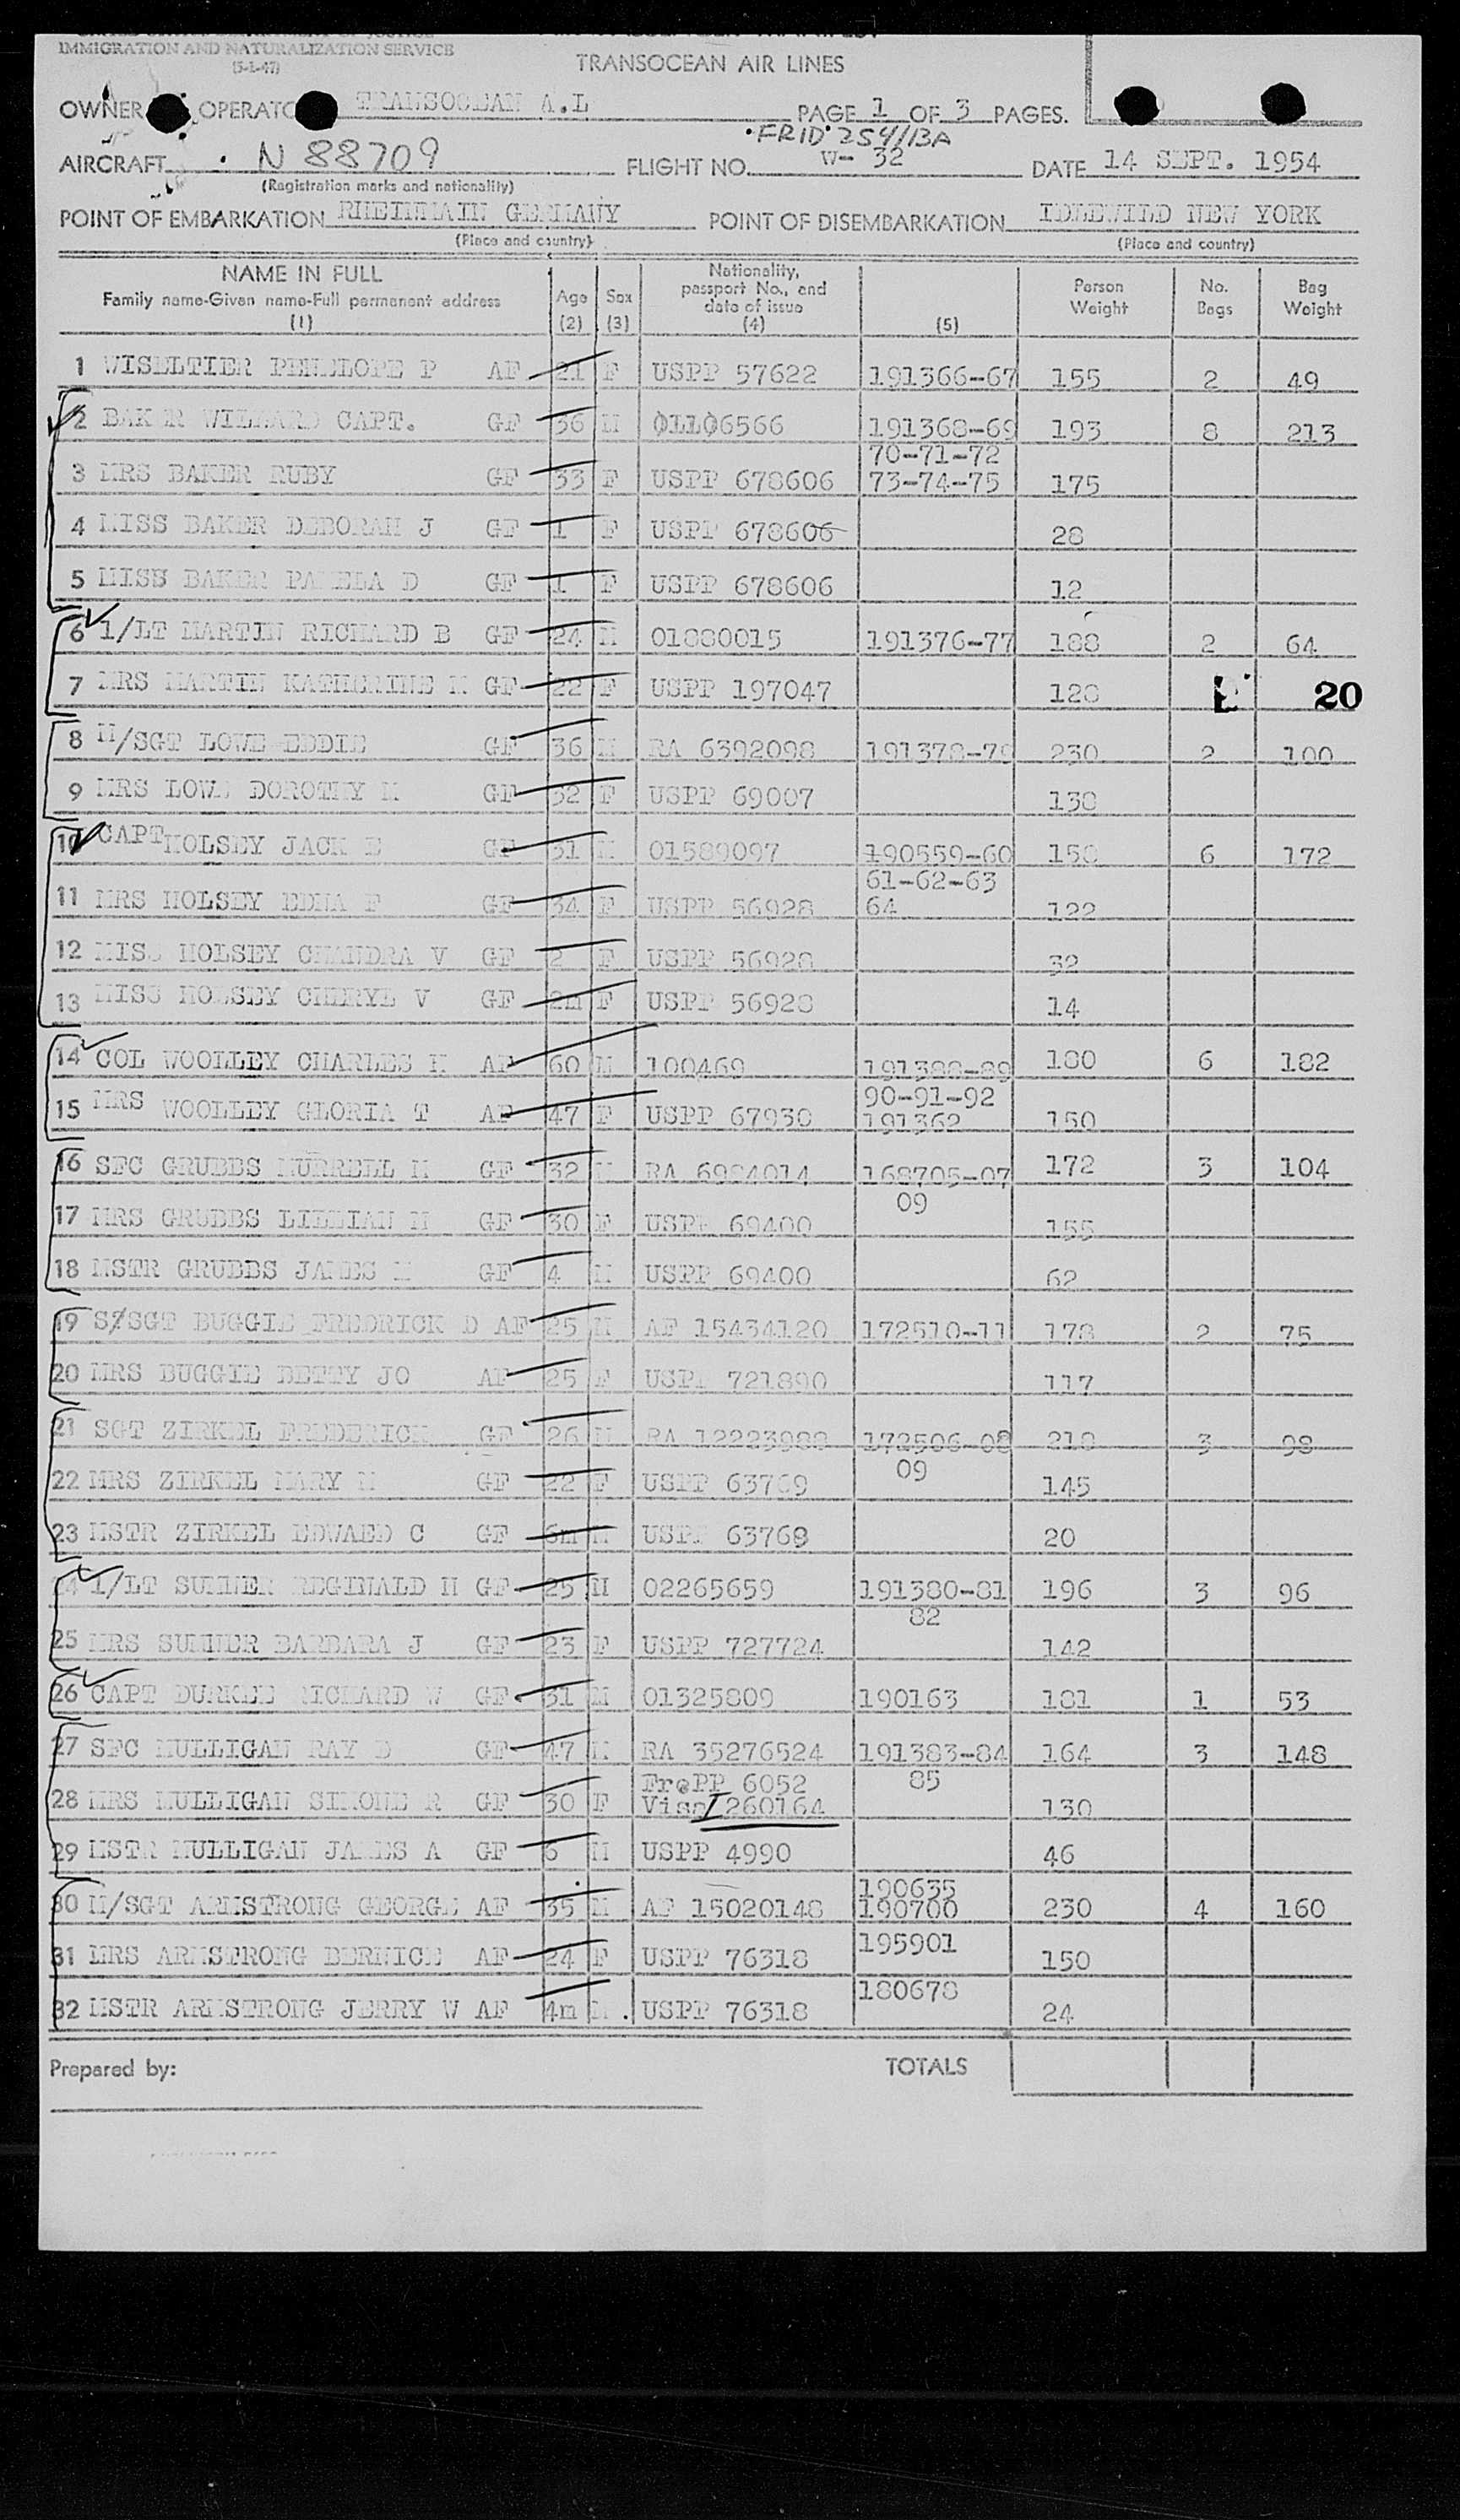 IMMIGRATION AND NATURALIZATION SERVICE
(5-1-47)
TRANSOCEAN AIR LINES
OWNER OPERATO TRANSOCEAN A.L PAGE 1 OF 3 PAGES.
FRID 254/13A
AIRCRAFT N 88709 FLIGHT NO. W- 32 DATE 14 SEPT. 1954
(Registration marks and nationality)
POINT OF EMBARKATION RHEINMAIN GERMANY POINT OF DISEMBARKATION IDLEWILD NEW YORK
(Place and country) (Place and country)
NAME IN FULL
Family name-Given name-Full permanent address
(1)
Age
(2)
Sex
(3)
Nationality,
passport No., and
date of issue
(4)
(5)
Person
Weight
No.
Bags
Bag
Weight
1 WISELTIER PENELOPE P AF 21 F USPP 57622 191366-67 155 2 49
2 BAK R WILLARD CAPT. GF 36 M 01106566 191368-69 193 8 213
70-71-72
3 MRS BAKER RUBY GF 33 F USPP 678606 73-74-75 175
4 MISS BAKER DEBORAH J GF 1 F USPP 678606 28
5 MISS BAKER PAMELA D GF 1 F USPP 678606 12
6 1/LT MARTIN RICHARD B GF 24 M 01880015 191376-77 188 2 64
7 MRS MARTIN KATHERINE M GF 22 F USPP 197047 128 20
8 M/SGT LOWE EDDIE GF 36 M RA 6392098 191378-79 230 2 100
9 MRS LOWE DOROTHY M GF 32 F USPP 69007 138
10 CAPT HOLSEY JACK E GF 31 M 01589097 190559-60 158 6 172
61-62-63
11 MRS HOLSEY EDNA F GF 34 F USPP 56928 64 122
12 MISS HOLSEY CHANDRA V GF 2 F USPP 56928 32
13 MISS HOLSEY CHERYL V GF 2m F USPP 56928 14
14 COL WOOLLEY CHARLES H AF 60 M 100469 191388-89 180 6 182
90-91-92
15 MRS WOOLLEY GLORIA T AF 47 F USPP 67930 191362 150
16 SFC GRUBBS MURRELL M GF 32 M RA 6984014 168705-07 172 3 104
09
17 MRS GRUBBS LILLIAN M GF 30 F USPP 69400 155
18 MSTR GRUBBS JAMES M GF 4 M USPP 69400 62
19 S/SGT BUGGIE FREDRICK D AF 25 M AF 15434120 172510-11 178 2 75
20 MRS BUGGIE BETTY JO AF 25 F USPP 721890 117
21 SGT ZIRKEL FREDERICK GF 26 M RA 12223988 172506-08 218 3 98
09
22 MRS ZIRKEL MARY M GF 22 F USPP 63769 145
23 MSTR ZIRKEL EDWAED C GF 6m M USPP 63768 20
24 1/LT SUMNER REGINALD H GF 25 M 02265659 191380-81 196 3 96
82
25 MRS SUMNER BARBARA J GF 23 F USPP 727724 142
26 CAPT DURKEE RICHARD W GF 31 M 01325809 190163 181 1 53
27 SFC MULLIGAN RAY D GF 47 M RA 35276524 191383-84 164 3 148
FrePP 6052 85
28 MRS MULLIGAN SIMONE R GF 30 F Visa I 260164 130
29 MSTR MULLIGAN JAMES A GF 6 M USPP 4990 46
190635
30 M/SGT ARMSTRONG GEORGE AF 35 M AF 15020148 190700 230 4 160
31 MRS ARMSTRONG BERNICE AF 24 F USPP 76318 195901 150
180678
32 MSTR ARMSTRONG JERRY W AF 4m M . USPP 76318 24
Prepared by: TOTALS